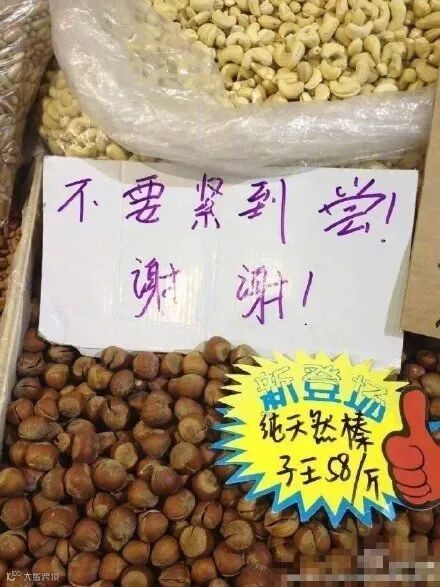 不要紧到尝!
谢谢!
新登场
纯天然榛
子王58/斤
大数跨境